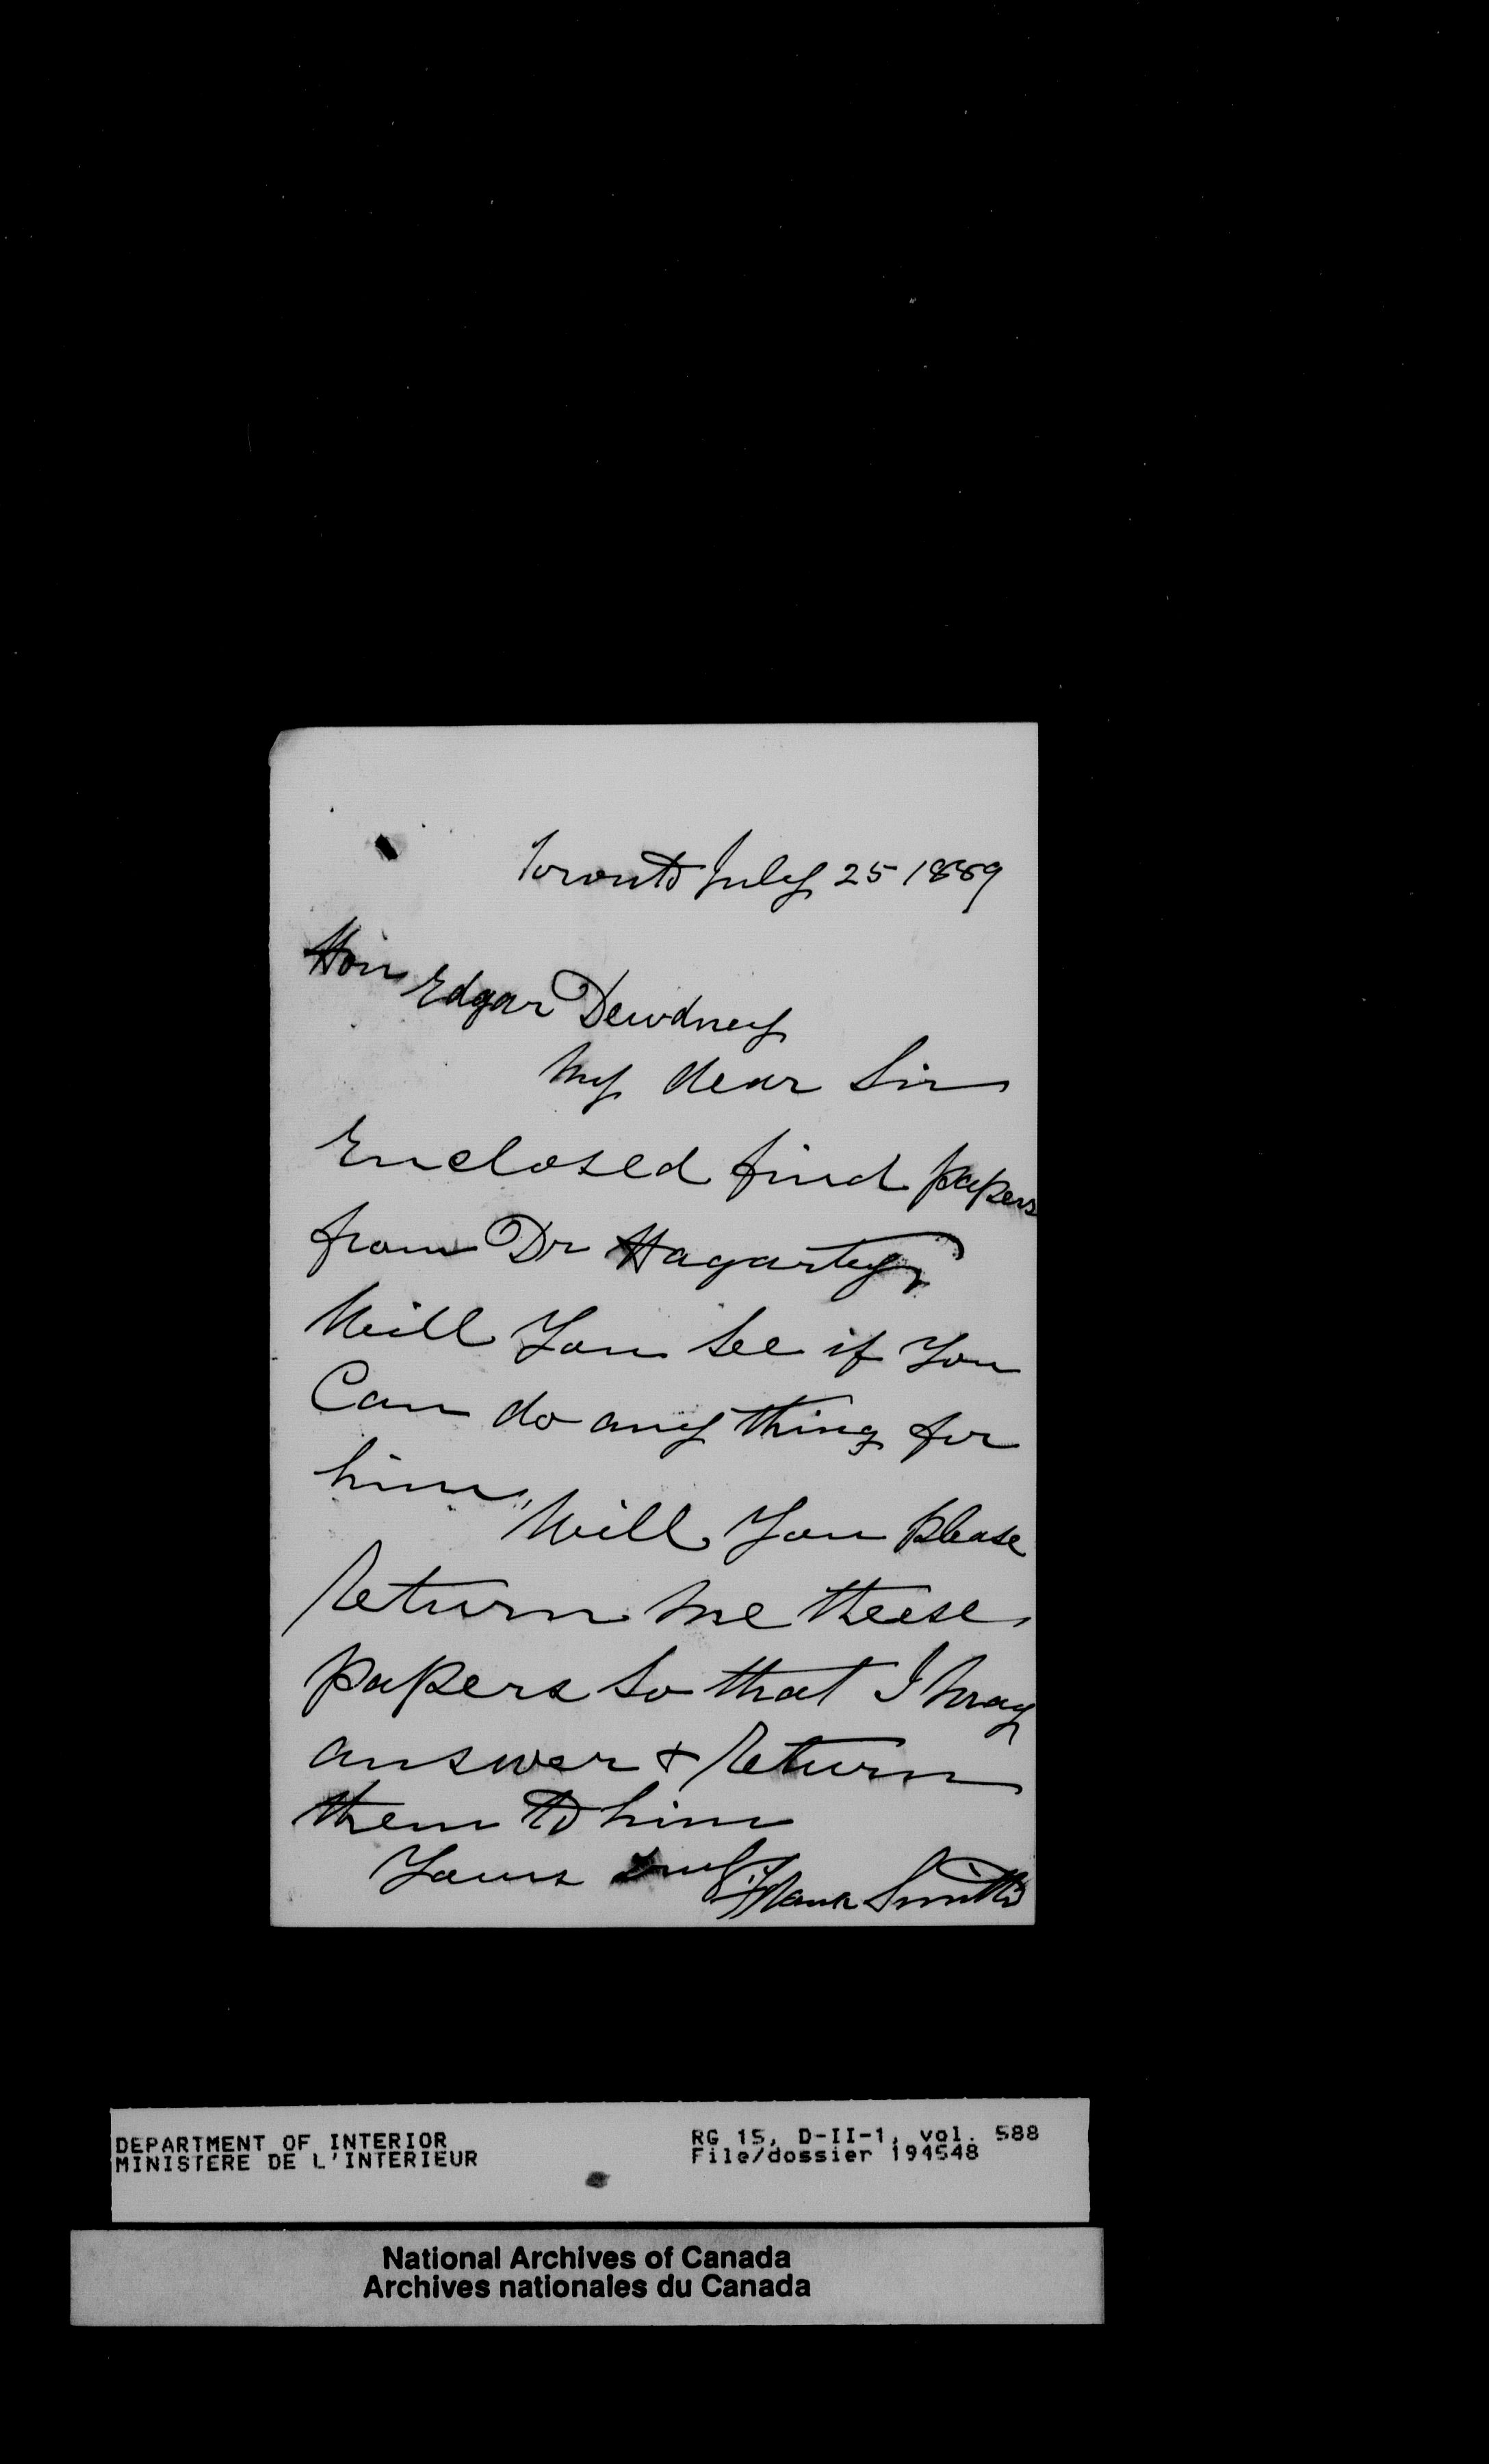 Toronto July 25 1889
Hon Edgar Dewdney
My dear Sir
Enclosed find papers
from Dr Hagarty
Will You See if You
Can do any thing for
him, Will You please
Return me theese
papers So that I may
answer & Return
them to him
Yours Truly Frank Smith
DEPARTMENT OF INTERIOR
MINISTERE DE L'INTERIEUR
RG 15, D-II-1, vol. 588
File/dossier 194548
National Archives of Canada
Archives nationales du Canada